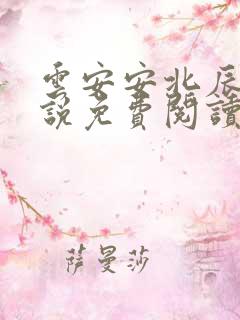 雲安安北辰
說免費閱讀
薩曼莎